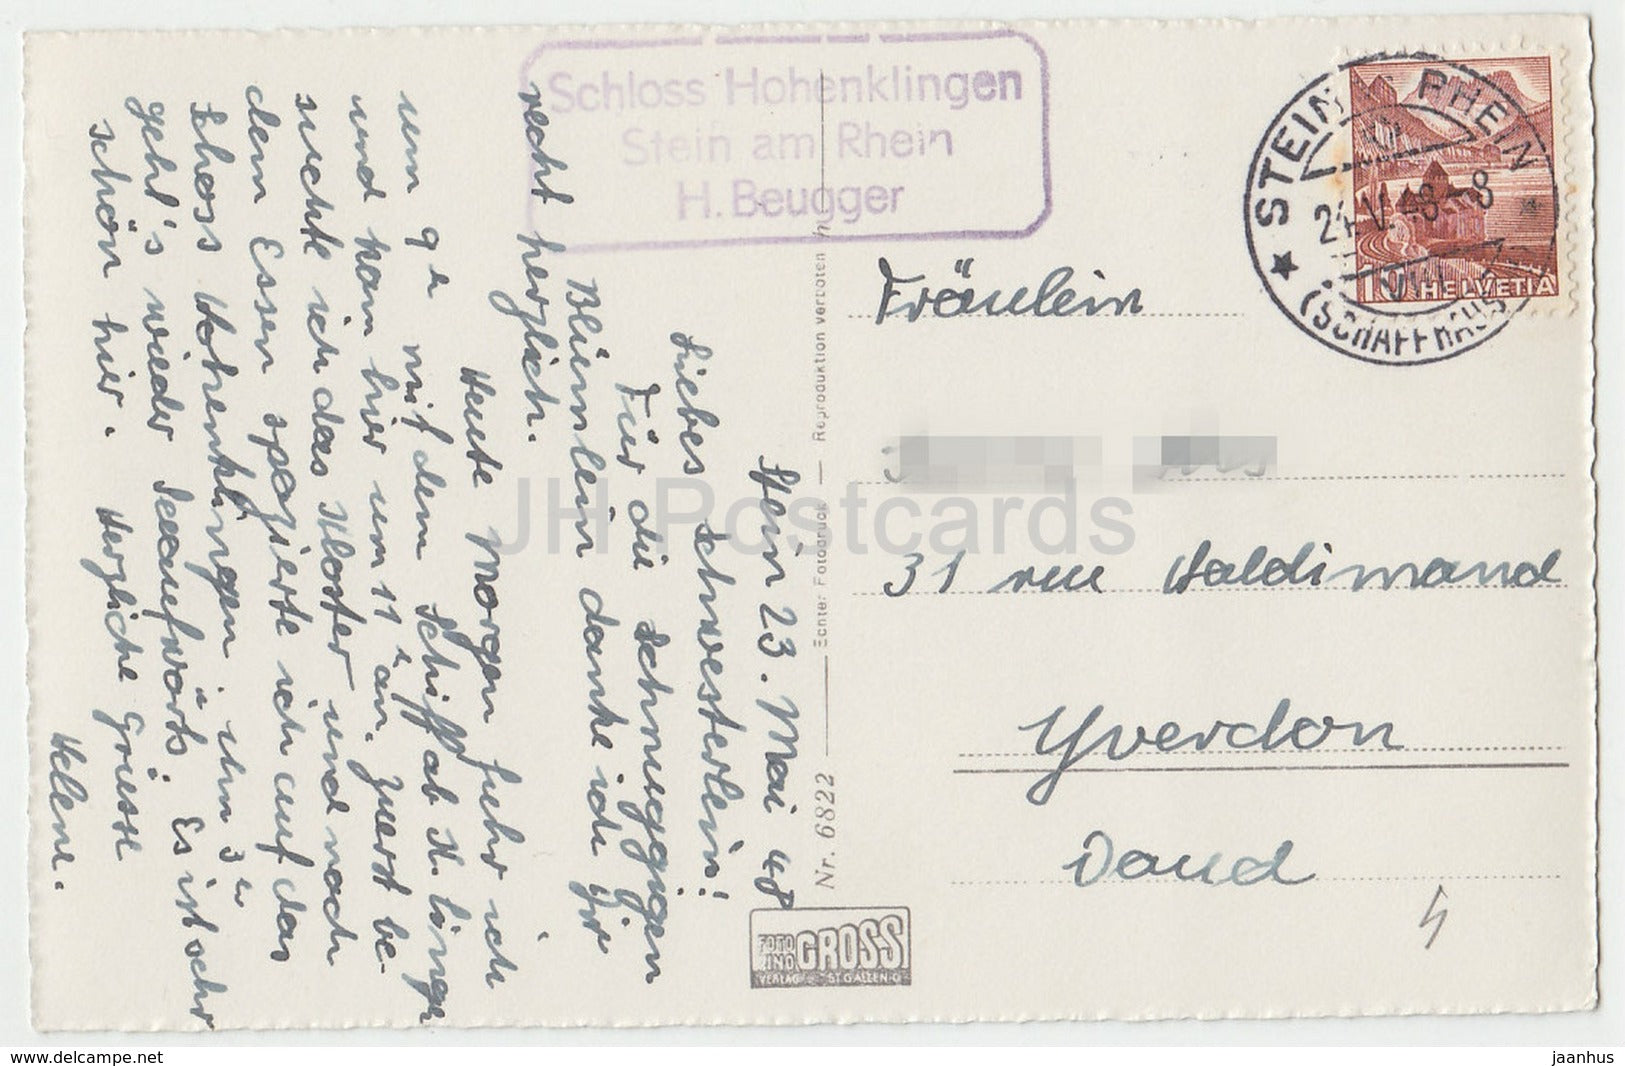 Schloss Hohenklingen
Stein am Rhein
H. Beugger
STEIN RHEIN
24.V.48-8
(SCHAFFHAUSEN)
10 HELVETIA
Stein 23. Mai 48
Liebes Schwesterlein!
Für die schnuggigen
Blümlein danke ich Dir
recht herzlich.
Heute Morgen fuhr ich
um 9 mit dem Schiff ab
und kam hier um 11 an. Zuerst be-
suchte ich das Kloster und nach
dem Essen spazierte ich auf das
Schoss Hohenklingen. Um 3
geht's wieder seeaufwärts. Es ist sehr
schön hier. Herzliche Grüsse
Helene.
Nr. 6822 — Echter Fotodruck — Reproduktion verboten
FOTO UND GROSS
VERLAG ST. GALLEN-O
Fräulein
31 rue Haldimand
Yverdon
Vaud
JH Postcards
www.delcampe.net
jaanhus